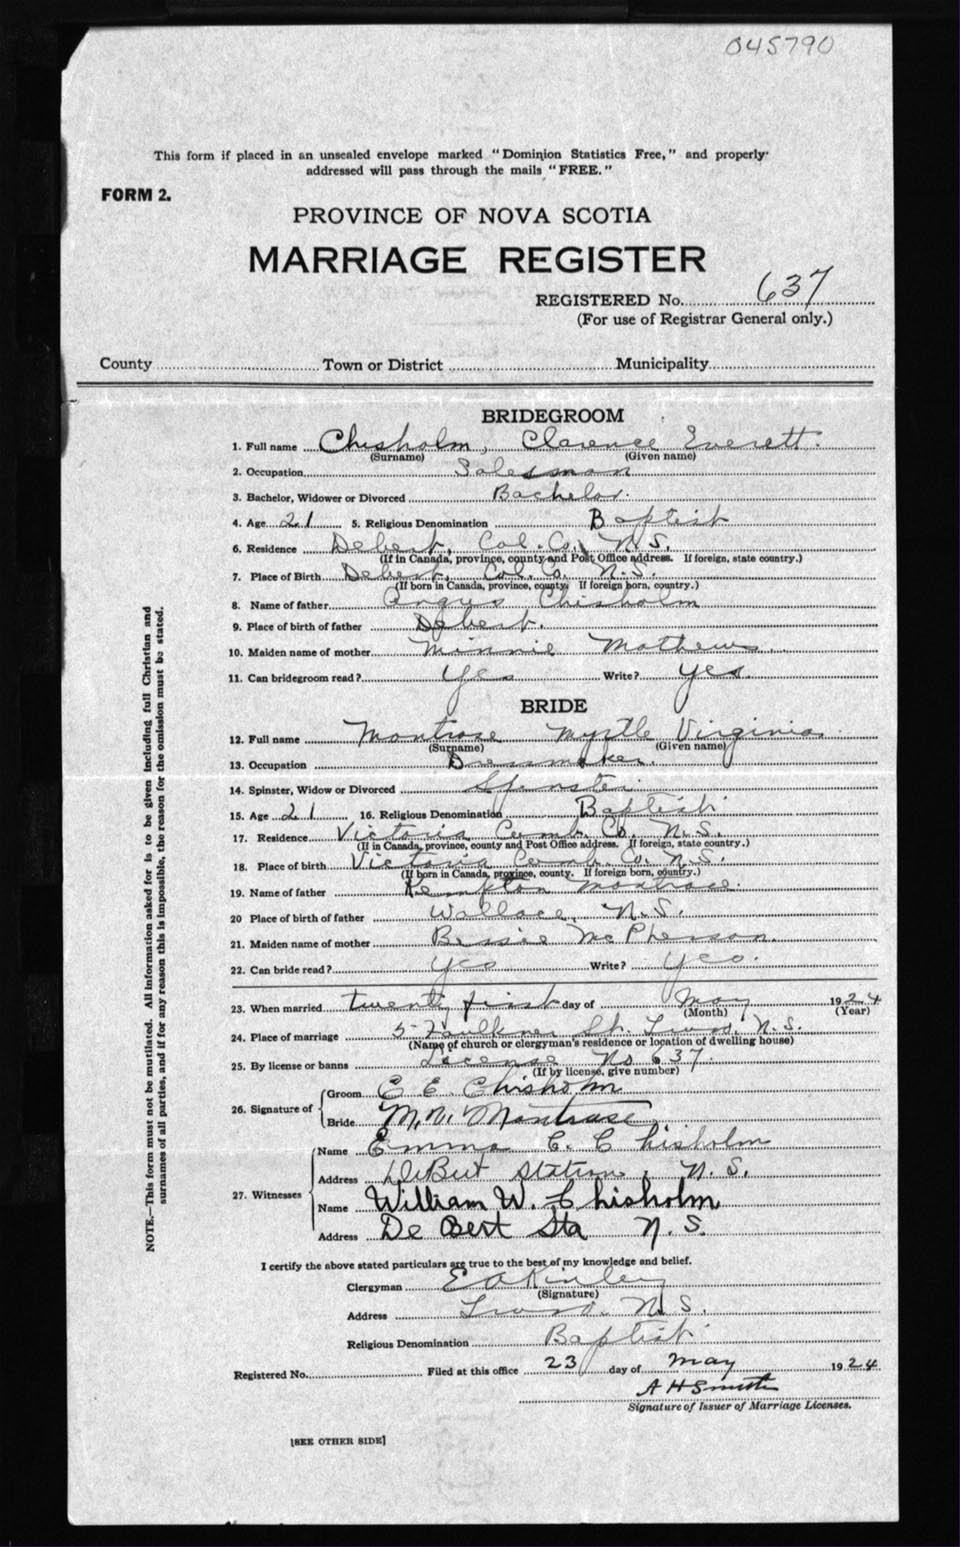 045790
This form if placed in an unsealed envelope marked "Dominion Statistics Free," and properly
addressed will pass through the mails "FREE."
FORM 2.
PROVINCE OF NOVA SCOTIA
MARRIAGE REGISTER
REGISTERED No. 637
(For use of Registrar General only.)
County Town or District Municipality
BRIDEGROOM
1. Full name Chisholm, Clarence Everett.
(Surname) (Given name)
2. Occupation Salesman
3. Bachelor, Widower or Divorced Bachelor.
4. Age 21 5. Religious Denomination Baptist
6. Residence Debert, Col. Co., N.S.
(If in Canada, province, county and Post Office address. If foreign, state country.)
7. Place of Birth Debert, Col. Co. N.S.
(If born in Canada, province, county. If foreign born, country.)
8. Name of father Angus Chisholm
9. Place of birth of father Debert.
10. Maiden name of mother Minnie Mathews
11. Can bridegroom read? Yes Write? Yes.
BRIDE
12. Full name Montrose Myrtle Virginia
(Surname) (Given name)
13. Occupation Dressmaker.
14. Spinster, Widow or Divorced Spinster
15. Age 21 16. Religious Denomination Baptist
17. Residence Victoria Cumb. Co. N.S.
(If in Canada, province, county and Post Office address. If foreign, state country.)
18. Place of birth Victoria Cumb. Co. N.S.
(If born in Canada, province, county. If foreign born, country.)
19. Name of father Kempton Montrose.
20 Place of birth of father Wallace, N.S.
21. Maiden name of mother Bessie McPherson.
22. Can bride read? Yes Write? Yes.
23. When married twenty first day of May 1924
(Month) (Year)
24. Place of marriage 5 Faulkner St. Truro. N.S.
(Name of church or clergyman's residence or location of dwelling house)
25. By license or banns License No 637.
(If by license, give number)
26. Signature of Groom C. E. Chisholm
Bride M. V. Montrose
27. Witnesses Name Emma C. Chisholm
Address DeBert Station, N.S.
Name William W. Chisholm
Address De Bert Sta N.S.
I certify the above stated particulars are true to the best of my knowledge and belief.
Clergyman E A Kinley
(Signature)
Address Truro. N.S.
Religious Denomination Baptist
Registered No. Filed at this office 23 day of May 1924
A H Smith
Signature of Issuer of Marriage Licenses.
[SEE OTHER SIDE]
NOTE.—This form must not be mutilated. All information asked for is to be given including full Christian and
surnames of all parties, and if for any reason this is impossible, the reason for the omission must be stated.